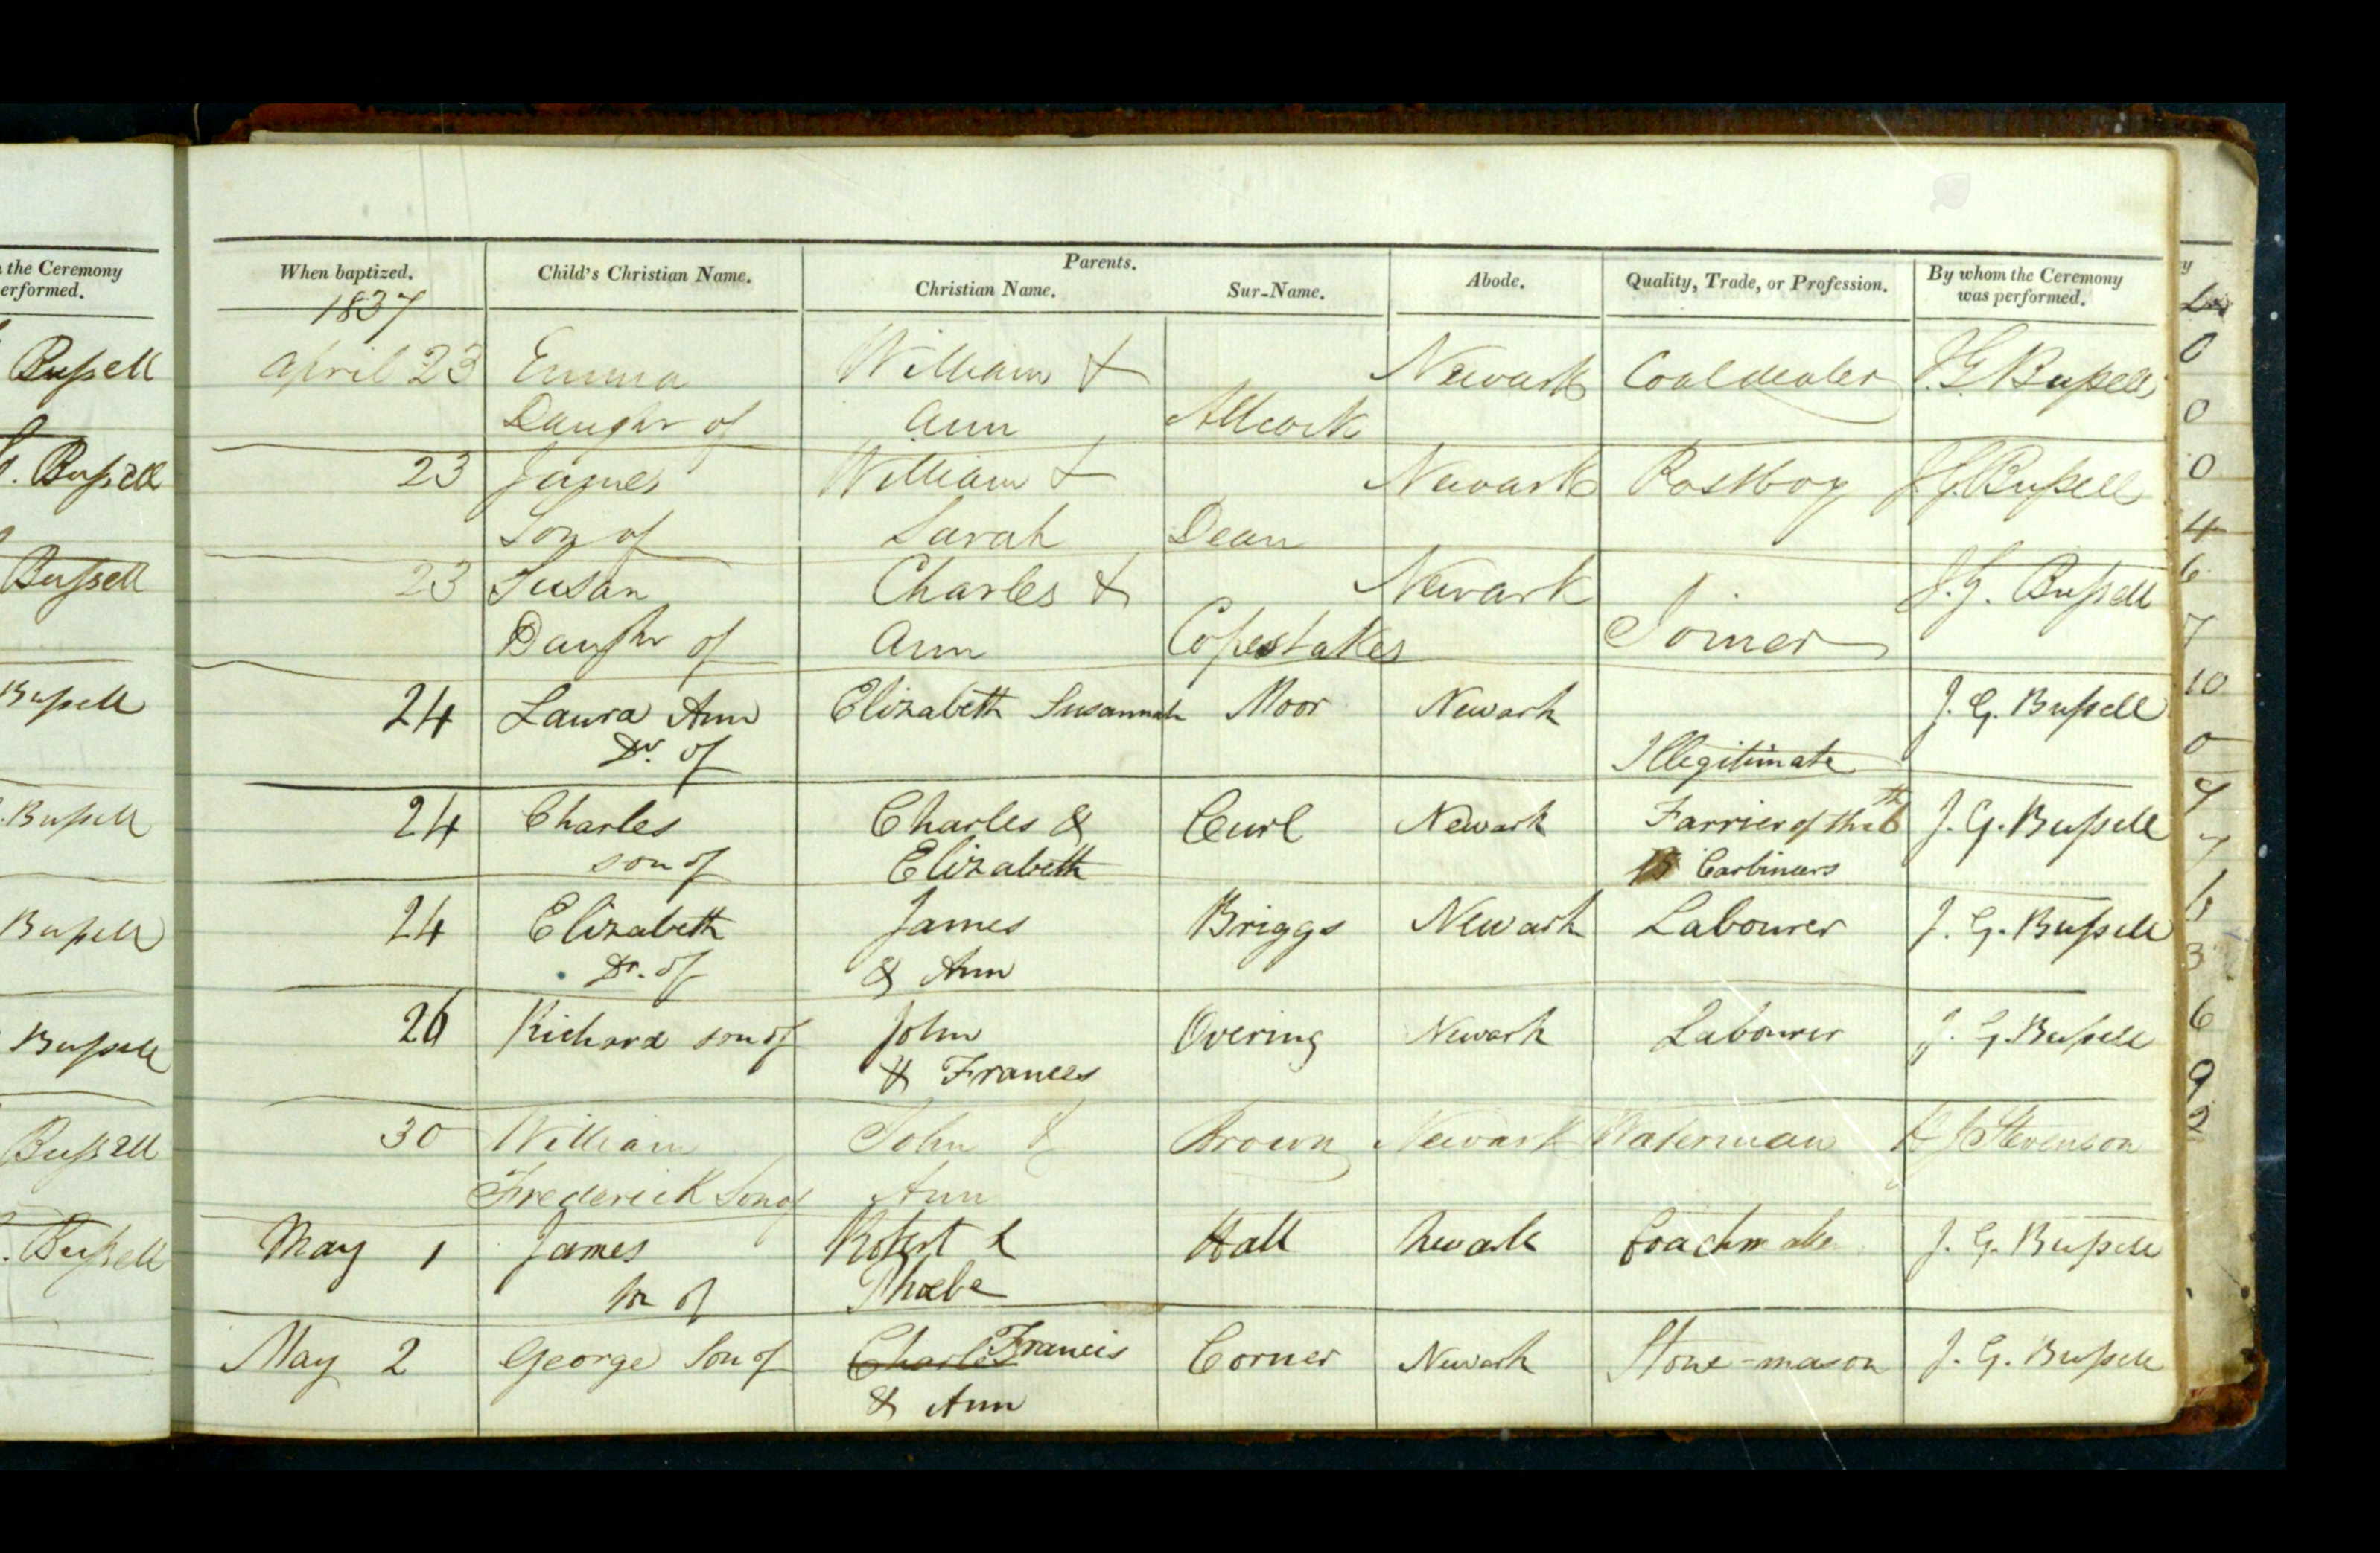 the Ceremony
erformed.
Bussell
. Bussell
Bussell
Bussell
. Bussell
Bussell
Bussell
Bussell
. Bussell
When baptized.
Child's Christian Name.
Parents.
Christian Name.
Sur-Name.
Abode.
Quality, Trade, or Profession.
By whom the Ceremony
was performed.
1837
April 23 Emma William & Newark Coaldealer J. G. Bussell
Daughr of Ann Allcock
23 James William & Newark Postboy J. G. Bussell
Son of Sarah Dean
23 Susan Charles & Newark J. G. Bussell
Daughr of Ann Copestakes Joiner
24 Laura Ann Elizabeth Susannah Moor Newark J. G. Bussell
Dr. of Illegitimate
24 Charles Charles & Curl Newark Farrier of the 6th J. G. Bussell
son of Elizabeth Carbineers
24 Elizabeth James Briggs Newark Labourer J. G. Bussell
Dr. of & Ann
26 Richard son of John Overing Newark Labourer J. G. Bussell
& Frances
30 William John & Brown Newark Waterman Stevenson
Frederick Son of Ann
May 1 James Robert & Hall Newark Coachmaker J. G. Bussell
son of Phoebe
May 2 George Son of Charles Francis Corner Newark Stone-mason J. G. Bussell
& Ann
y
0
0
0
4
6
7
10
0
6
3
6
9
2